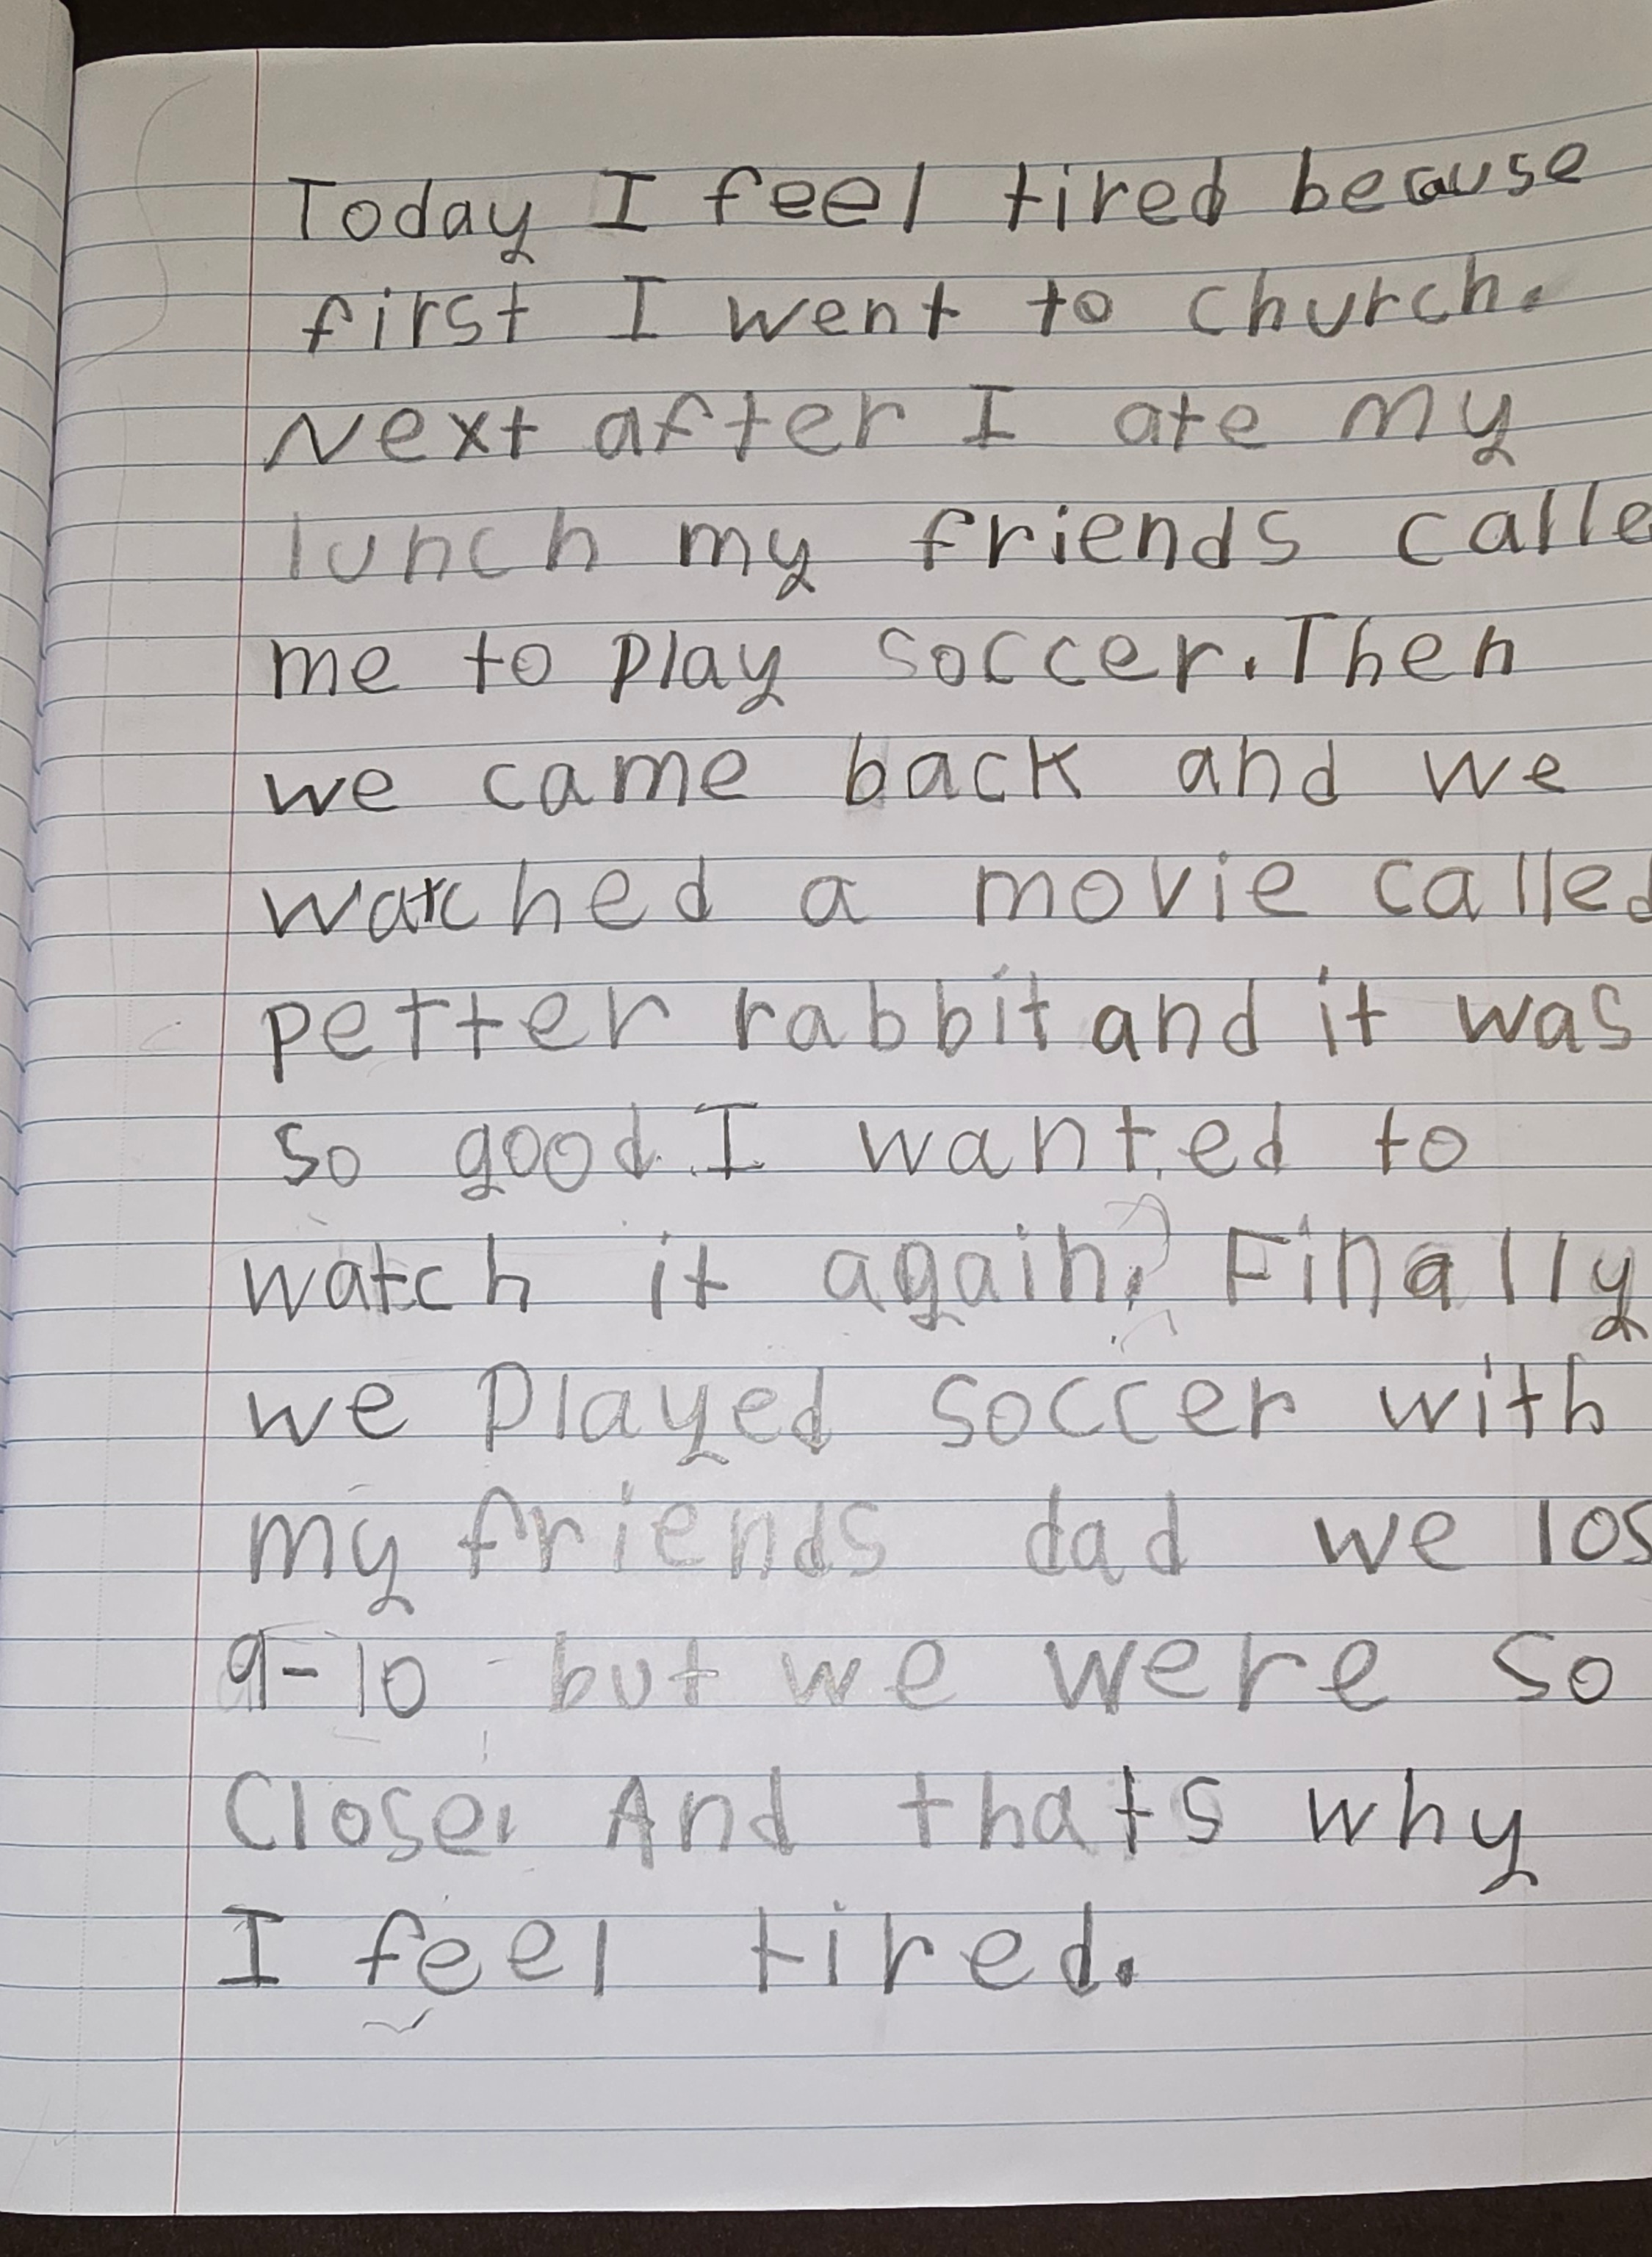 Today I feel tired because
first I went to church.
Next after I ate my
lunch my friends calle
me to play soccer. Then
we came back and we
watched a movie called
petter rabbit and it was
so good. I wanted to
watch it again. Finally
we played soccer with
my friends dad we los
9-10 but we were so
Close. And thats why
I feel tired.